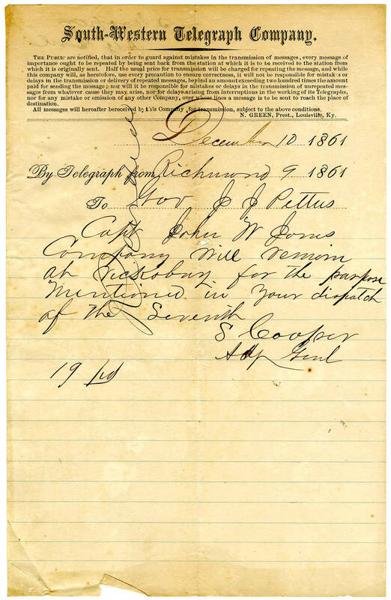 South-Western Telegraph Company.
THE PUBLIC are notified, that in order to guard against mistakes in the transmission of messages, every message of
importance ought to be repeated by being sent back from the station at which it is to be received to the station from
which it is originally sent. Half the usual price for transmission will be charged for repeating the message, and while
this company will, as heretofore, use every precaution to ensure correctness, it will not be responsible for mistakes or
delays in the transmission or delivery of repeated messages, beyond an amount exceeding two hundred times the amount
paid for sending the message; nor will it be responsible for mistakes or delays in the transmission of unrepeated mes-
sages from whatever cause they may arise, nor for delays arising from interruptions in the working of its Telegraphs,
nor for any mistake or omission of any other Company, over whose lines a message is to be sent to reach the place of
destination.
All messages will hereafter be received by this Company, for transmission, subject to the above conditions.
N. GREEN, Prest., Louisville, Ky.
December 10 1861
By Telegraph from Richmond 9 1861
To Gov J J Pettus
Capt John W Jones
Company will remain
at Vicksburg for the purpose
mentioned in your dispatch
of the Seventh
S Cooper
Adj Genl
19